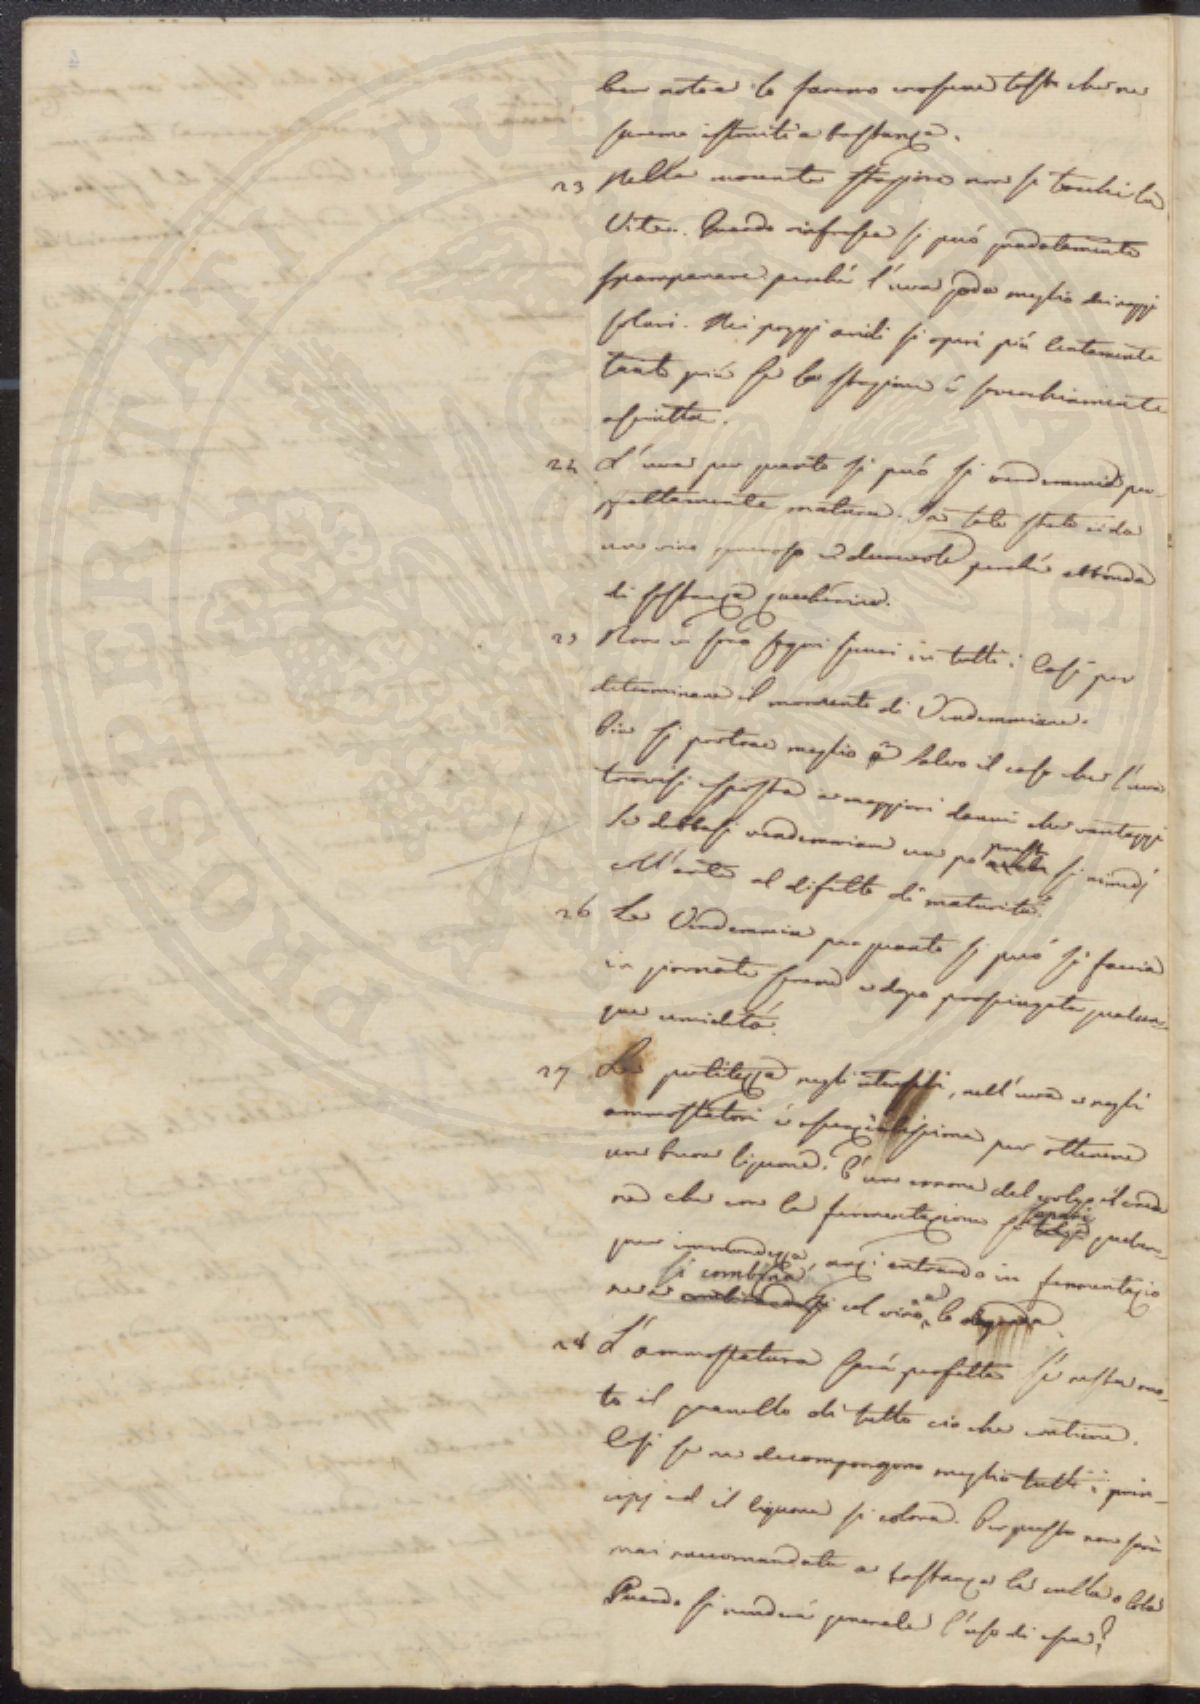 ben note le faremo conoscere tosto che ne
saremo istruiti a bastanza.
23 Nella corrente stagione non si tocchi la
Vite. Quando rinfresca si può gradatamente
spampanare perché l'uva goda meglio dei raggi
solari. Nei poggi aridi si operi più lentamente
tanto più se la stagione è soverchiamente
asciutta.
24 L'uva per quanto si può si vendemmia per-
fettamente matura. In tale stato ci da
un vino generoso e durevole perché abbonda
di sostanza zuccherina.
25 Non vi sono segni sicuri in tutti i casi per
determinare il momento di Vendemmiare.
Più si protrae meglio è salvo il caso che l'uva
trovisi esposta a maggiori danni che vantaggi
Se debbasi vendemmiare un po' presto si rimedj
coll'arte al difetto di maturità.
26 La Vendemmia per quanto si può si faccia
in giornate serene e dopo prosciugata qualun-
que umidità.
27 La pulitezza negli utensili, nell'uva e negli
ammostatori è essenzialissima per ottenere
un buon liquore. È un errore del volgo il crede
re che con la fermentazione si spari qualun-
que immondezza anzi entrando in fermentazio
ne si combina col vino e lo degrada.
28 L'ammostatura sarà perfetta se resta vuo-
to il granello di tutto ciò che contiene.
Così se ne decompongono meglio tutti i prin-
cipj ed il liquore si colora. Per questo non sarà
mai raccomandata a bastanza la
Quando si renderà generale l'uso di essa?
PROSPERITATI PUBLICAE AUGENDAE